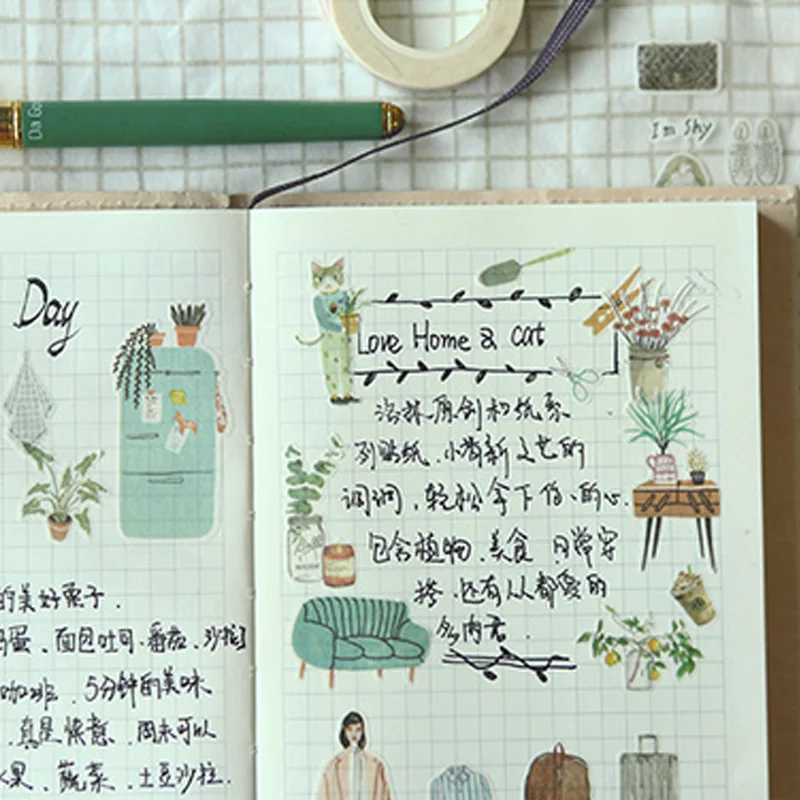 Da Go
Im Shy
Day
的美好栗子.
蛋、面包吐司、番茄、沙拉
咖啡、5分钟的美味
、真是惬意、周末可以
水果、蔬菜、土豆沙拉.
Love Home & cat
洛林原创和纸系
列贴纸、小清新文艺的
调调、轻松拿下你的心.
包含植物、美食、日常穿
搭、还有人人都爱的
多肉君.